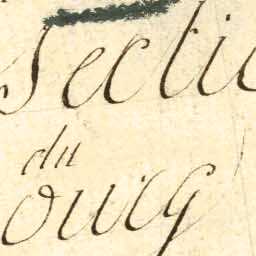 Sectio
du
ourg